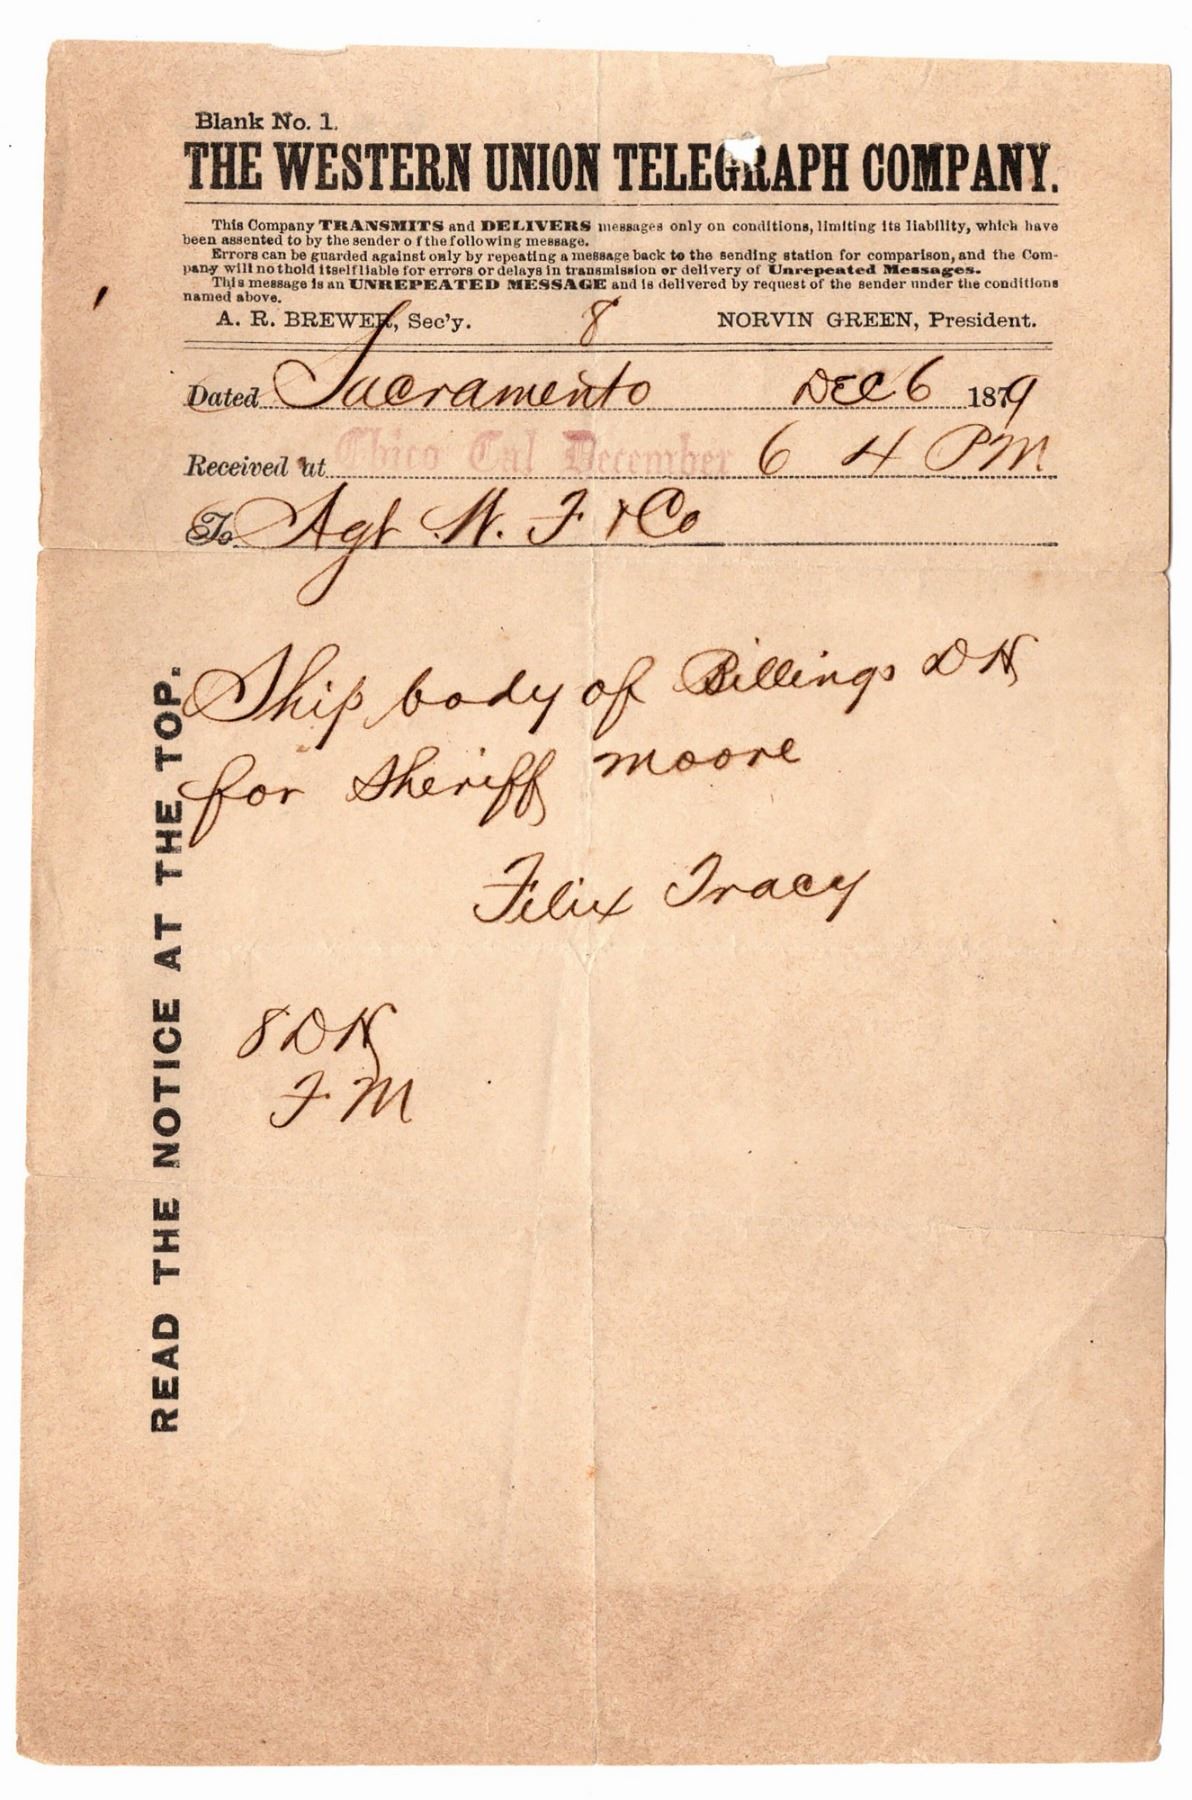 Blank No. 1.
THE WESTERN UNION TELEGRAPH COMPANY.
This Company TRANSMITS and DELIVERS messages only on conditions, limiting its liability, which have
been assented to by the sender of the following message.
Errors can be guarded against only by repeating a message back to the sending station for comparison, and the Com-
pany will not hold itself liable for errors or delays in transmission or delivery of Unrepeated Messages.
This message is an UNREPEATED MESSAGE and is delivered by request of the sender under the conditions
named above.
A. R. BREWER, Sec'y. 8 NORVIN GREEN, President.
Dated Sacramento Dec 6 1879
Received at Chico Cal December 6 4 PM
To Agt W. F & Co
Ship body of Billings D H
for Sheriff Moore
Felix Tracy
8 D H
F M
READ THE NOTICE AT THE TOP.